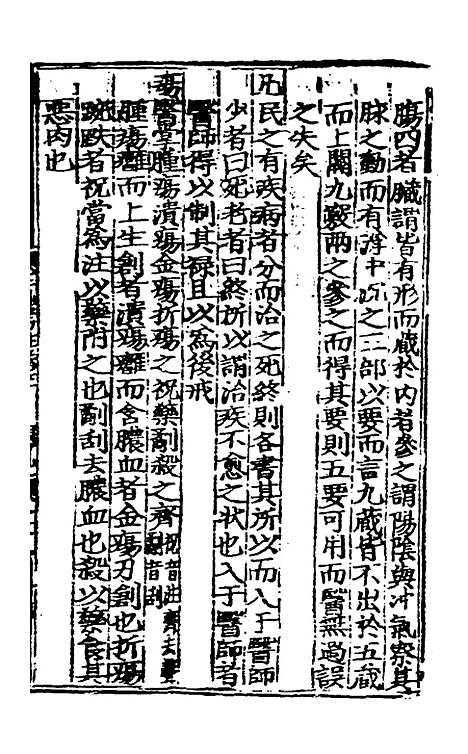 腸四者臟謂皆有形而藏於内者參之謂陽陰與冲氣察其
脉之動而有浮中沉之三部以要而言九藏皆不出於五藏
而上關九竅兩之參之而得其要則五要可用而醫無過誤
之失矣
凡民之有疾病者分而治之死終則各書其所以而入于醫師
少者曰死老者曰終所以謂治疾不愈之狀也入于醫師者
醫師得以制其祿且以為後戒
瘍醫掌腫瘍潰瘍金瘍折瘍之祝藥劀殺之齊祝音注 劀音刮
腫瘍癰而上生創者潰瘍癰而含膿血者金瘍刃創也折瘍
踠跌者祝當為注以藥附之也劀刮去膿血也殺以藥食其
惡肉也